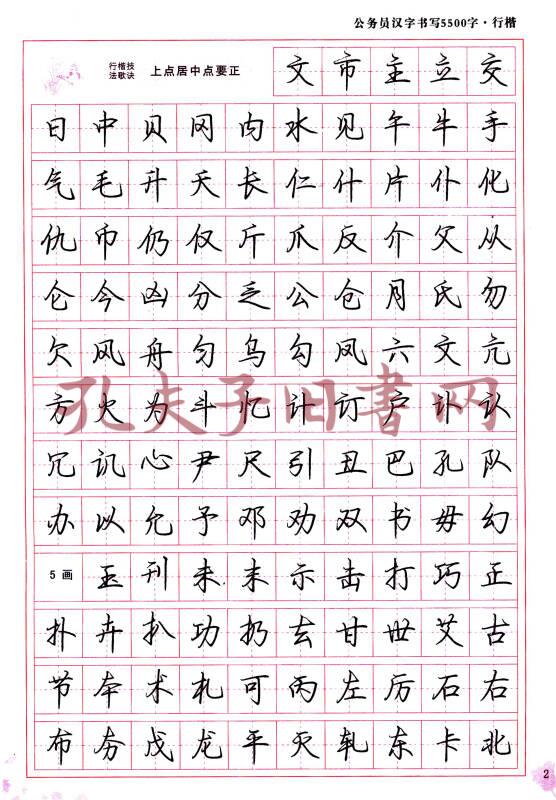 公务员汉字书写5500字·行楷
行楷技法歌诀 上点居中点要正 文市主立交
日中贝冈内水见午牛手
气毛升夭长仁什片仆化
仇币仍仅斤爪反介父从
仑今凶分乏公仓月氏勿
欠风丹匀乌勾凤六文亢
方火为斗忆计订户讣认
冗讥心尹尺引丑巴孔队
办以允予邓劝双书毋幻
5画 玉刊未末示击打巧正
扑卉扒功扔去甘世艾古
节本术札可丙左厉石右
布夯戊龙平灭轧东卡北
孔夫子旧书网
2